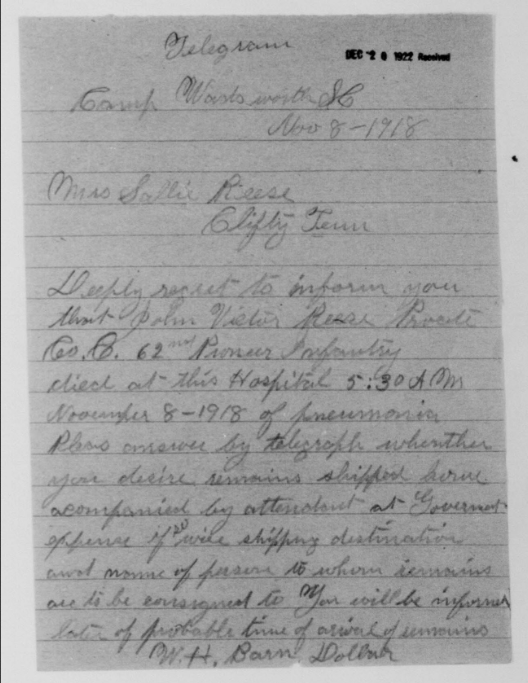 Telegram
DEC 20 1922 Received
Camp Wadsworth SC
Nov 8-1918
Mrs Sallie Reese
Clifty Tenn
Deeply regret to inform you
that John Victor Reese Private
Co. C. 62nd Pioneer Infantry
died at this Hospital 5:30 A M
November 8-1918 of pneumonia
Pleas answer by telegraph whenther
you desire remains shipped home
acompanied by attendant at Goverment
expense if so wire shipping destination
and name of person to whom remains
are to be consigned to You will be informed
later of probable time of arival of remains
W. H. Barn